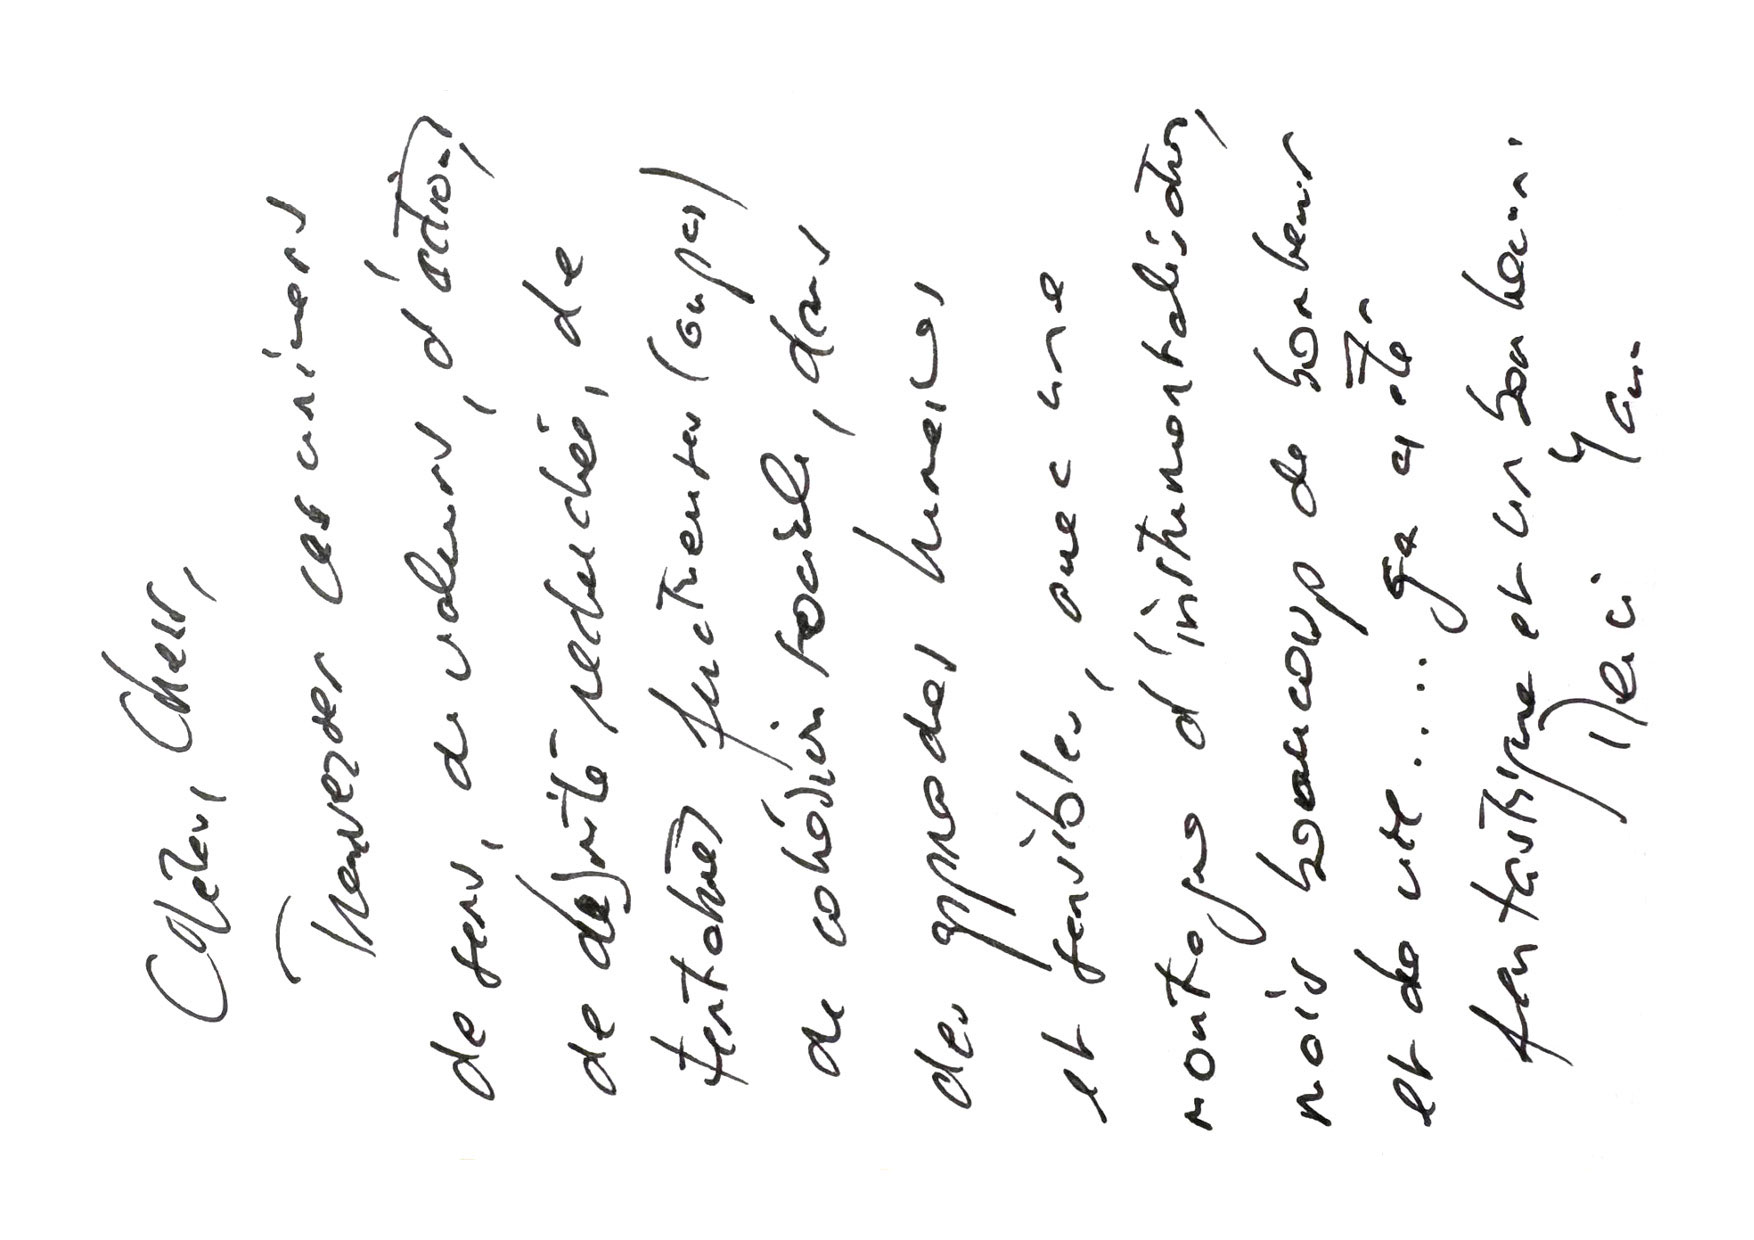 Chers,
Traverser ces univers
de sens, de valeurs, d'action,
de dignité recherchée, de
tentatives fructueuses (ou pas)
de cohésion sociale, dans
des approches humaines
et sensibles, avec une
montagne d'instrumentalisation,
mais beaucoup de bonheur
et de vie.... ça a été
fantastique et un bonheur.
Merci Yann